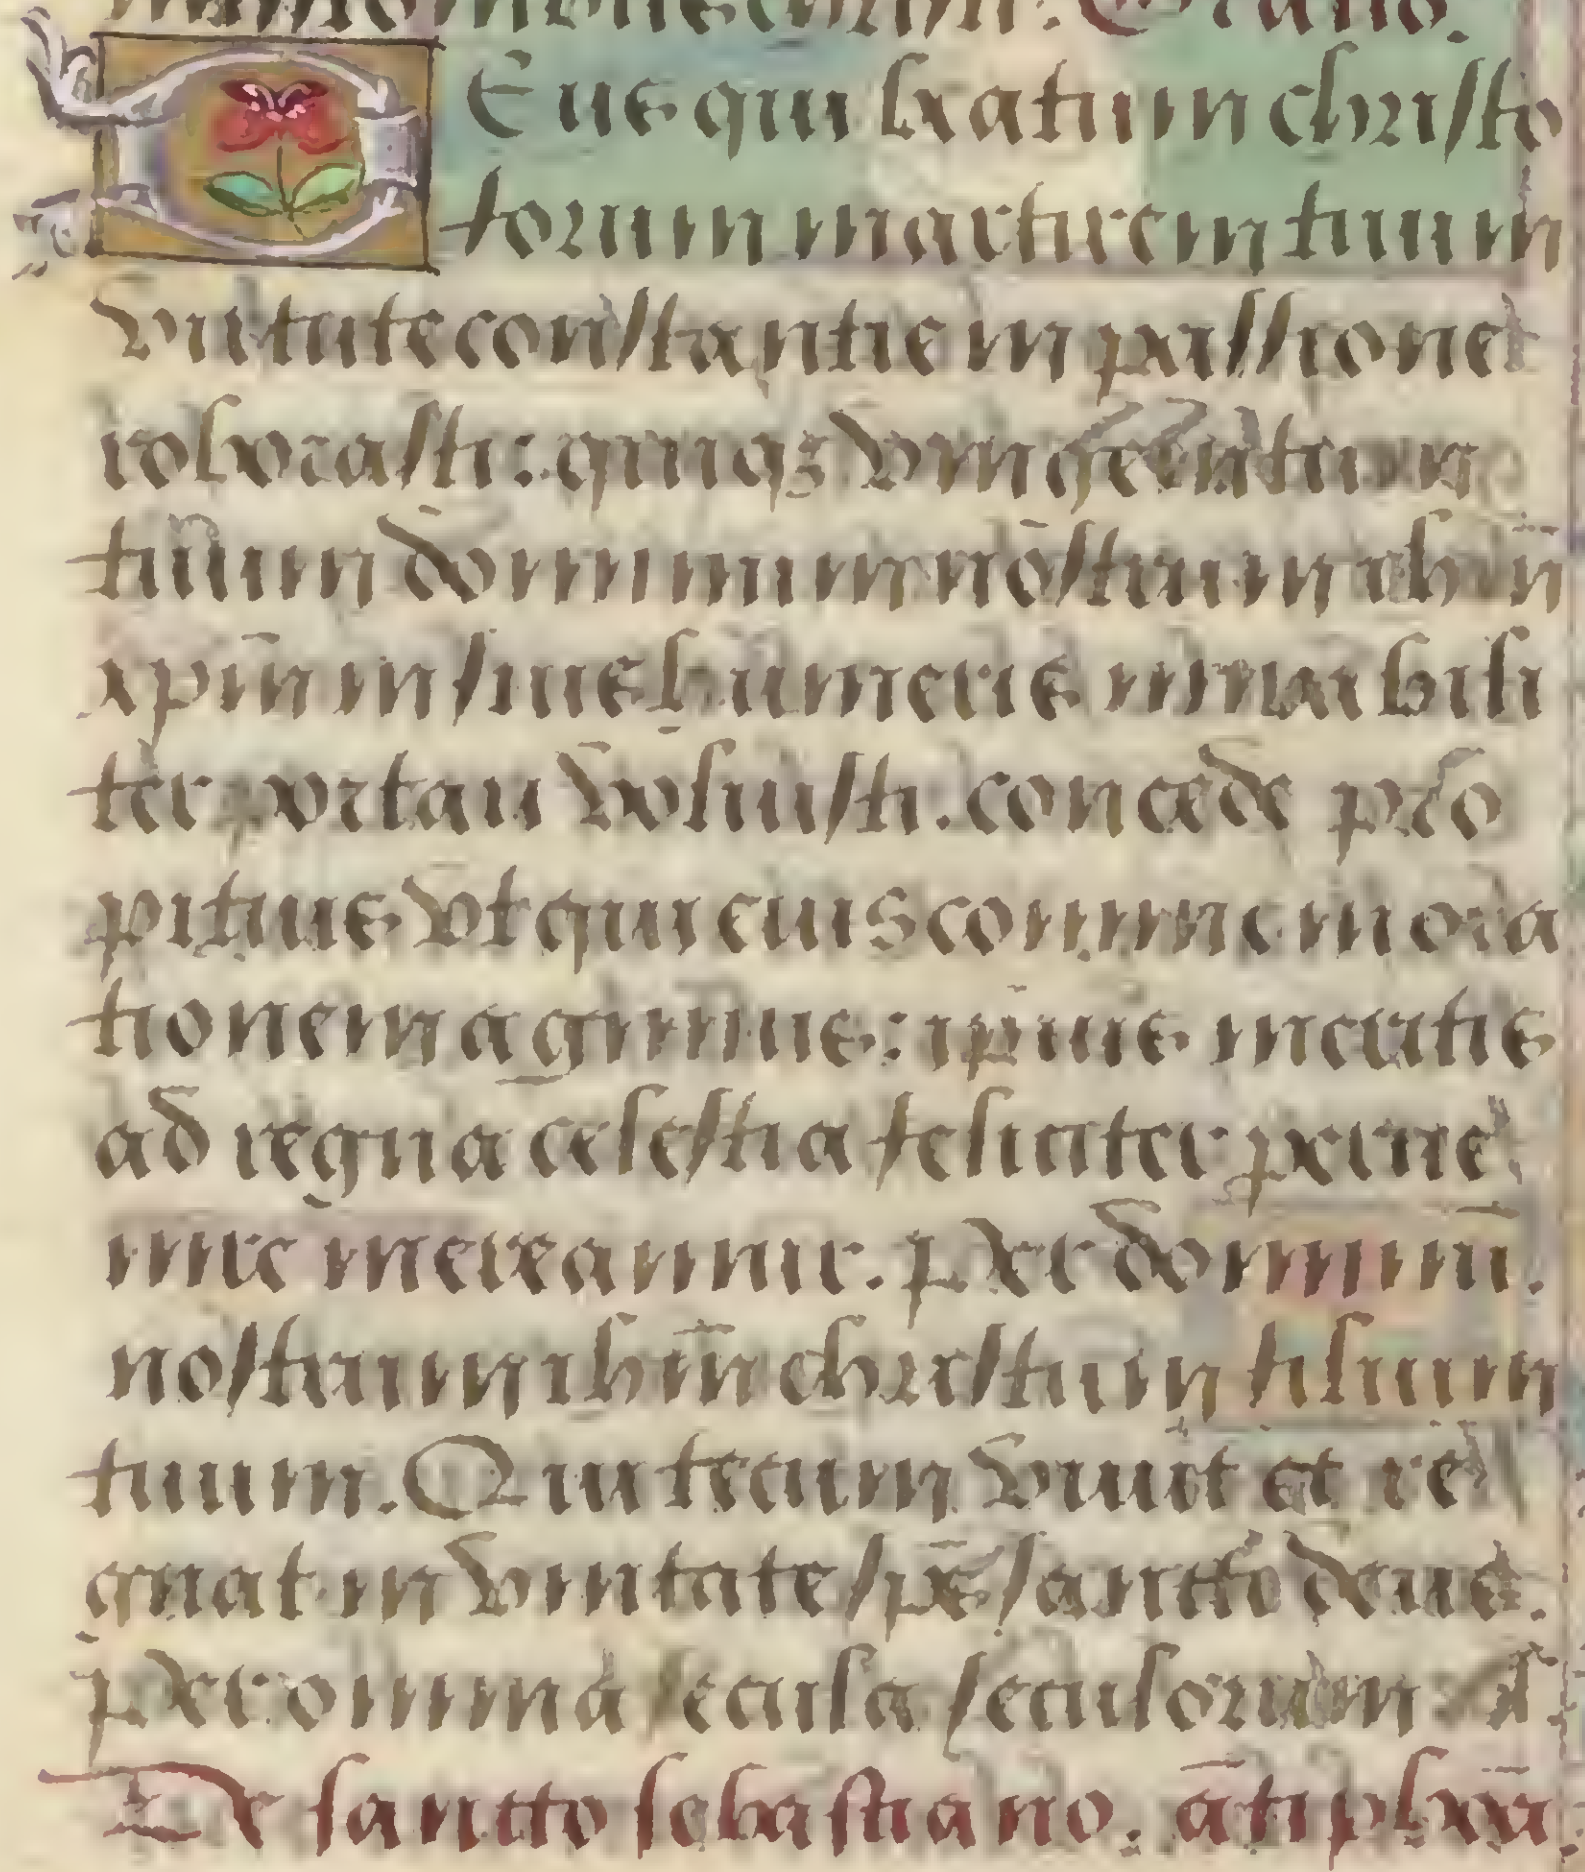 Oratio.
Deus qui beatum christo
forum martirem tuum
virtute constantie in passione
roborasti: quiqꝫ vnigenitum
tuum dominum nostrum ihm̄
xpm̄ in suis humeris mirabili
ter portari voluisti. concede pro
pitius vt qui eius commemora
tionem agimus: ipius meritis
ad regna celestia feliciter perue
nire mereamur. Per dominū.
nostrum ihm̄ christum filium
tuum. Qui tecum viuit et re
gnat in vnitate sps̄ sancti deus.
Per omnia secula seculorum A
De sancto sebastiano. an̄tiphoā